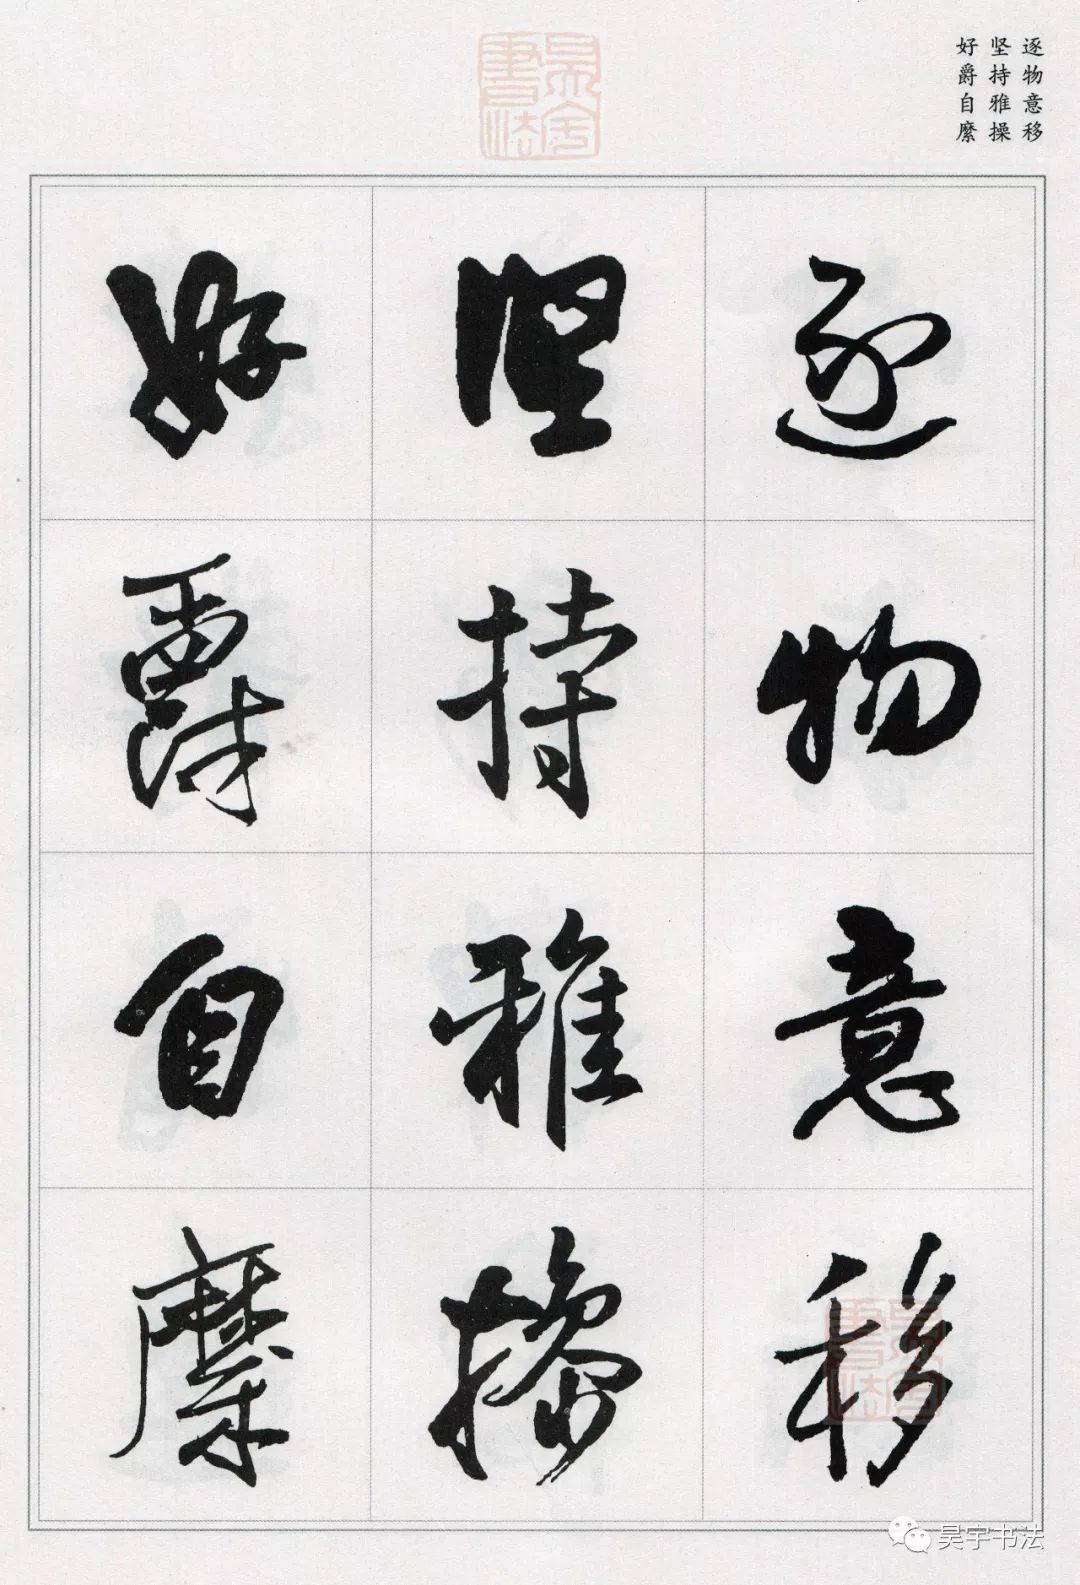 逐物意移
坚持雅操
好爵自縻
逐物意移
坚持雅操
好爵自縻
昊宇书法